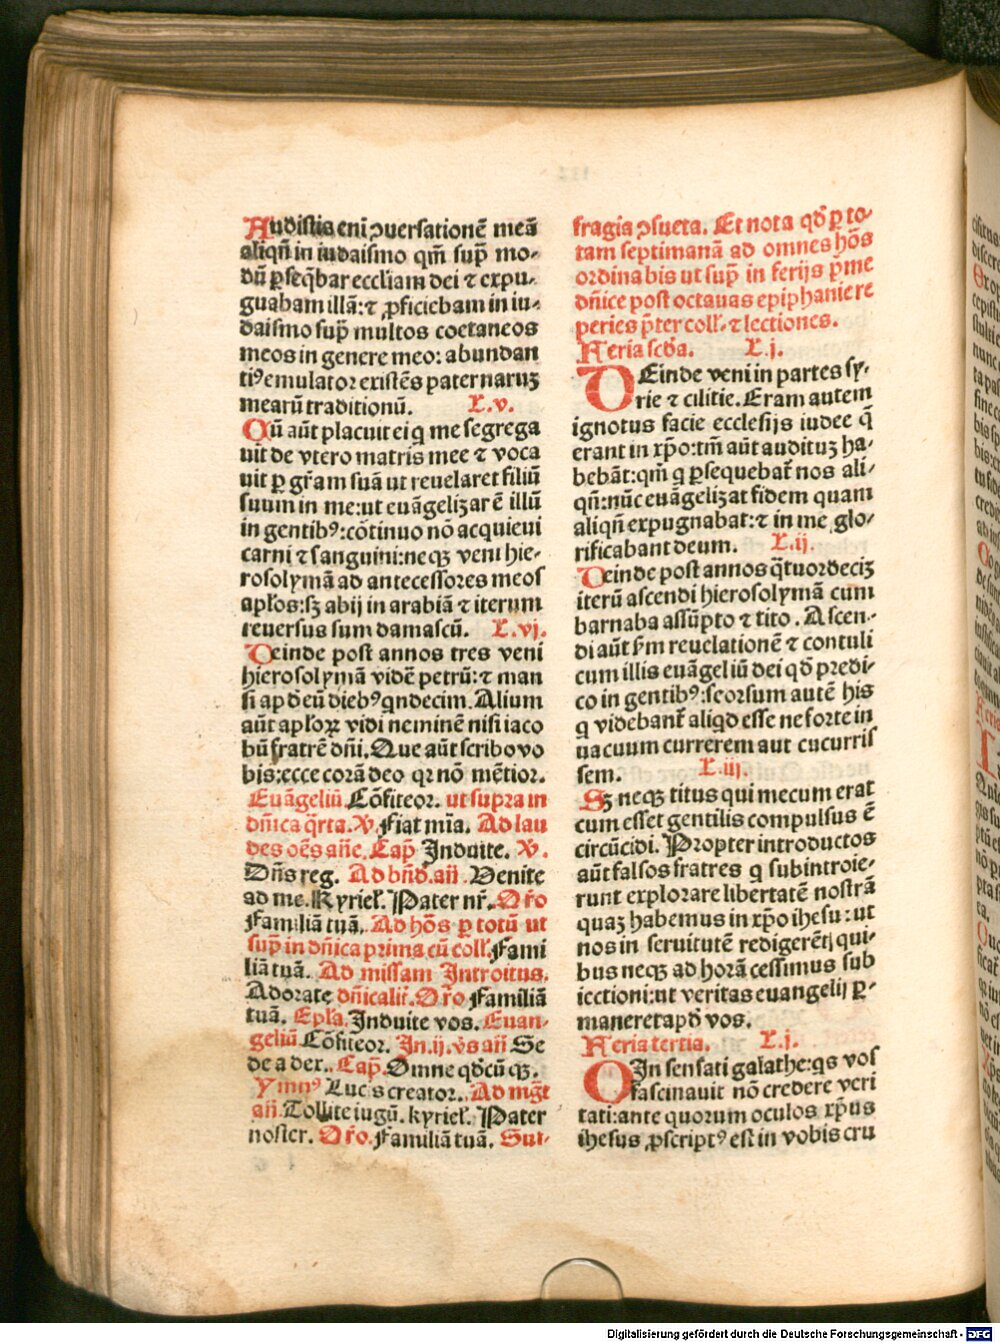 Audistis enī ꝯuersationē meā
aliqñ in iudaismo qm̄ sup̄ mo-
dū ꝑseq̄bar eccliam dei ⁊ expu-
gnabam illā: ⁊ ꝓficiebam in iu-
daismo sup̄ multos coetaneos
meos in genere meo: abundan
tiꝰ emulator existēs paternaruꝫ
mearū traditionū. L. v.
Cū aūt placuit ei q me segrega
uit de vtero matris mee ⁊ voca
uit ꝑ gr̄am suā ut reuelaret filiū
suum in me: ut euāgelizarē illū
in gentibꝰ: cōtinuo nō acquieui
carni ⁊ sanguini: neqꝫ veni hie-
rosolymā ad antecessores meos
aplos: sꝫ abij in arabiā ⁊ iterum
reuersus sum damascū. L. vj.
Deinde post annos tres veni
hierosolymā vidē petrū: ⁊ man
si apd eū diebꝰ qndecim. Alium
aūt aploꝝ vidi neminē nisi iaco
bū fratrē dñi. Que aūt scribo vo
bis: ecce corā deo qꝛ nō mētior.
Euāgeliū Cōfiteor. ut supra in
dñica q̄rta. V. Fiat mīa. Ad lau
des oēs añe. Cap̄ Induite. V.
Dñs reg. Ad bñd. añ. Venite
ad me. Kyriel. Pater nr̄. Or̄o
Familiā tuā. Ad hōs ꝑ totū ut
sup̄ in dñica prima cū coll. Fami
liā tuā. Ad missam Introitus.
Adorate dñicalit̄. Or̄o Familiā
tuā. Epl̄a. Induite vos. Euan-
geliū Cōfiteor. In. ij. v̄s añ Se
de a dex. Cap̄. Omne qd̄cū qꝫ.
Ymnꝰ Lucis creator. Ad mgt̄
añ. Tollite iugū. kyriel. Pater
noster. Or̄o. Familiā tuā. Suf-
fragia ꝯsueta. Et nota qd̄ ꝑ to-
tam septimanā ad omnes hōs
ordinabis ut sup̄ in ferijs p̄me
dñice post octauas epiphanie re
peries p̄ter coll. ⁊ lectiones.
Feria scd̄a. L. j.
DEinde veni in partes sy-
rie ⁊ cilitie. Eram autem
ignotus facie ecclesijs iudee q̄
erant in xp̄o: tm̄ aūt audituꝫ ha-
bebāt: qm̄ q ꝑsequebat̄ nos ali-
qñ: nūc euāgelizat fidem quam
aliqñ expugnabat: ⁊ in me glo-
rificabant deum. L. ij.
Deinde post annos q̄tuordeciꝫ
iterū ascendi hierosolymā cum
barnaba assūpto ⁊ tito. Ascen-
di aūt ẜm reuelationē ⁊ contuli
cum illis euāgeliū dei qd̄ predi-
co in gentibꝰ: seorsum autē his
q videbant̄ aliqd esse ne forte in
uacuum currerem aut cucurris
sem. L. iij.
Sꝫ neqꝫ titus qui mecum erat
cum esset gentilis compulsus ē
circūcidi. Propter introductos
aūt falsos fratres q subintroie-
runt explorare libertatē nostrā
quaꝫ habemus in xp̄o ihesu: ut
nos in seruitutē redigerēt: qui-
bus neqꝫ ad horā cessimus sub
iectioni: ut veritas euangelij ꝑ-
maneret apd̄ vos.
Feria tertia. L. j.
OIn sensati galathe: qs vos
fascinauit nō credere veri
tati: ante quorum oculos xp̄us
ihesus ꝓscriptꝰ est in vobis cru
Digitalisierung gefördert durch die Deutsche Forschungsgemeinschaft - DFG